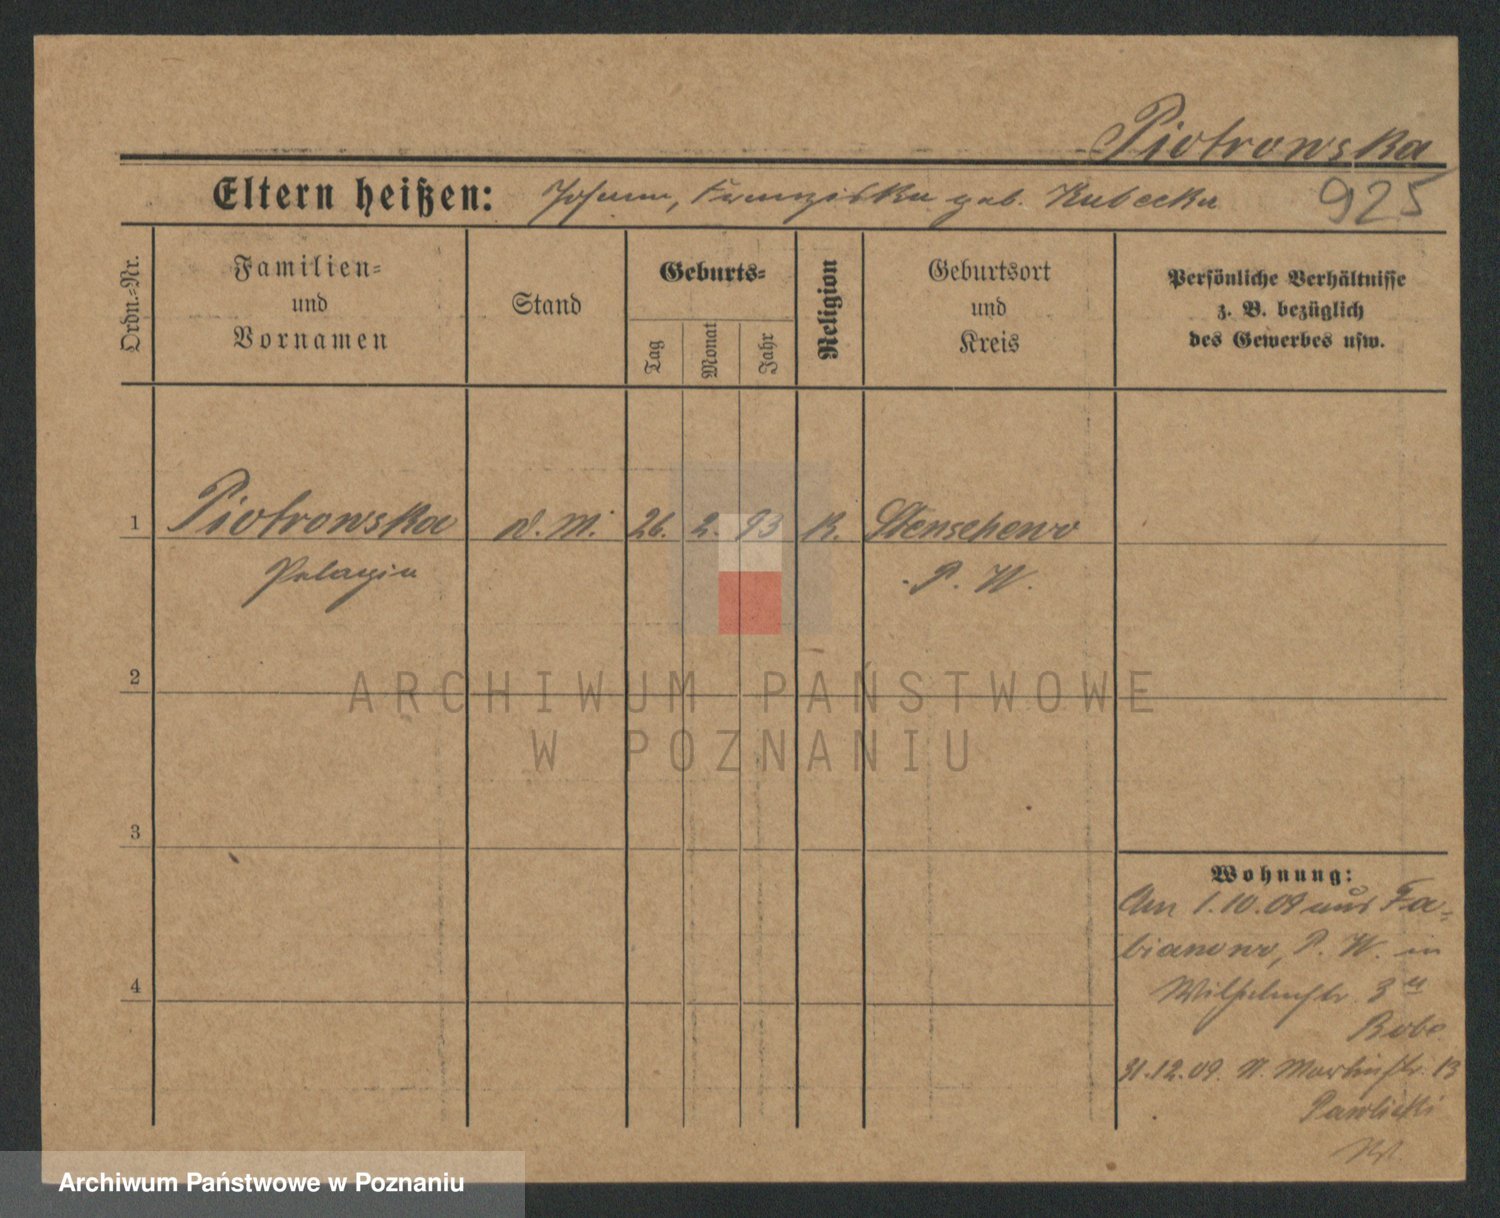 Piotrowska
Eltern heißen: Johann, Franziska geb. Kubecka 925
Ordn.=Nr.
Familien=
und
Vornamen
Stand
Geburts=
Tag
Monat
Jahr
Religion
Geburtsort
und
Kreis
Persönliche Verhältnisse
z. B. bezüglich
des Gewerbes usw.
1 Piotrowska d. M. 26. 2. 93 K. Stenschewo
Pelagia P. W.
2
ARCHIWUM PAŃSTWOWE
W POZNANIU
3
Wohnung:
Am 1.10.09 aus Fa-
bianowo, P. W. in
4
Wilhelmstr. 3
31.12.09. St. Martinstr. 13
Pawlicki
Archiwum Państwowe w Poznaniu